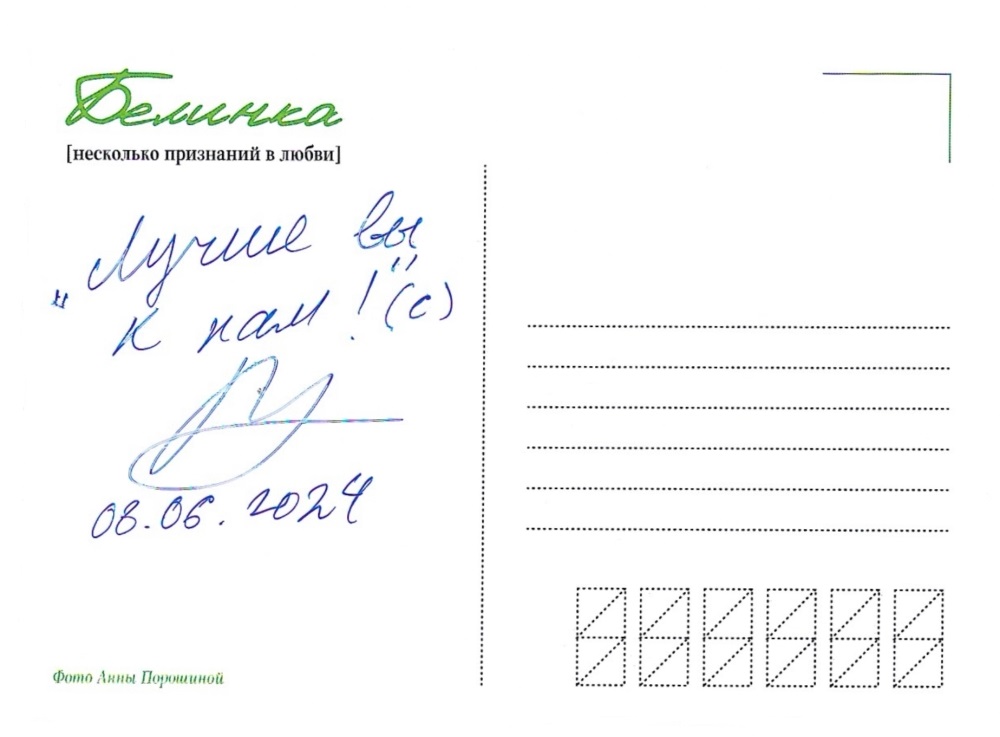 Белинка
[несколько признаний в любви]
"Лучше вы
к нам!" (с)
08.06.2024
Фото Анны Порошиной